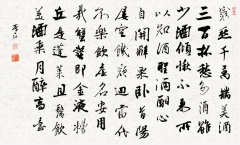 窮愁千萬端美酒
三百杯愁多酒雖
少酒傾愁不來所
以知酒聖酒酣心
自開辭粟臥首陽
屢空飢顏回當代
不樂飲虛名安用
哉蟹螯即金液糟
丘是蓬萊且須飲
美酒乘月醉高臺